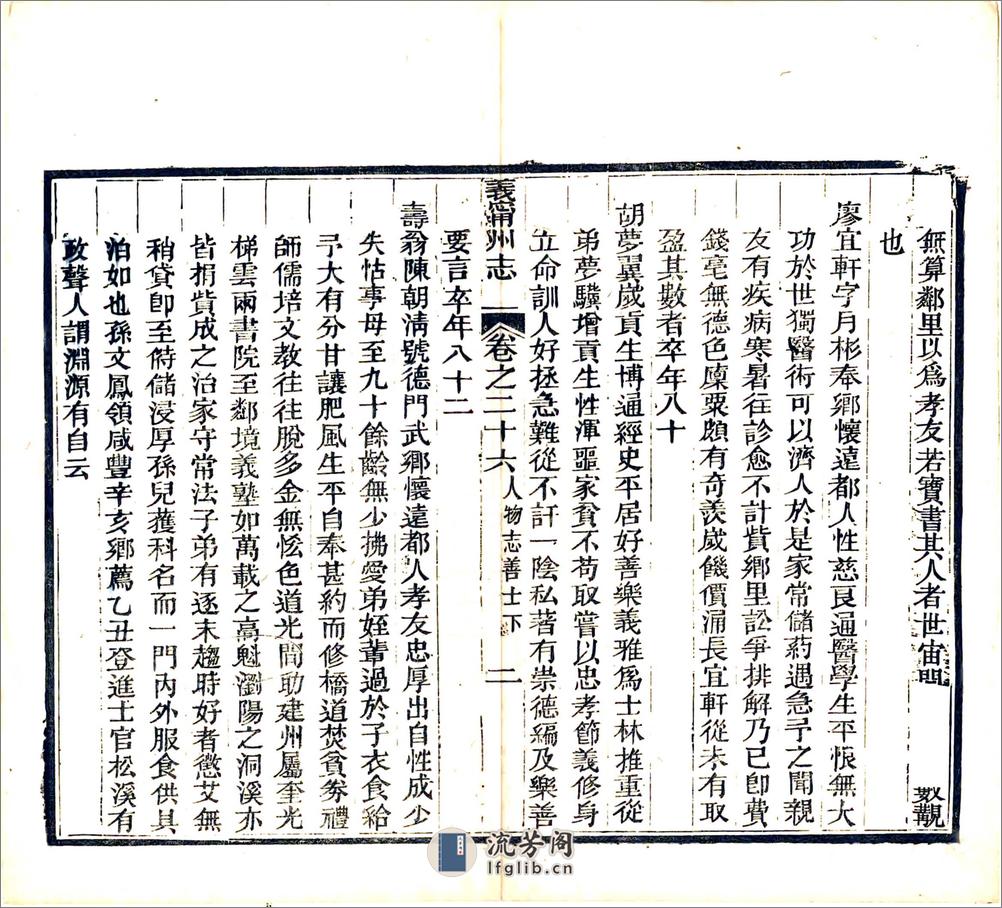 無算鄰里以爲孝友若寶書其人者世宙
覯
也
廖宜軒字月彬奉鄉懷遠都人性慈良通醫學生平恨無大
功於世獨醫術可以濟人於是家常儲葯遇急予之聞親
友有疾病寒暑往診愈不計貲鄉里訟爭排解乃已卽費
錢毫無德色廩粟頗有奇羨嵗饑價涌長宜軒從未有取
盈其數者卒年八十
胡夢翼嵗貢生博通經史平居好善樂義雅爲士林推重從
弟夢驥增貢生性渾噩家貧不苟取嘗以忠孝節義修身
立命訓人好拯急難從不訐一陰私著有崇德編及樂善
要言卒年八十二
義甯州志 卷之二十六 人物志善士下 二
壽翁陳朝淸號德門武鄉懷遠都人孝友忠厚出自性成少
失怙事母至九十餘齡無少拂愛弟姪輩過於子衣食給
予大有分甘讓肥風生平自奉甚約而修橋道焚貧券禮
師儒培文教往往脫多金無恡色道光間助建州屬奎光
梯雲兩書院至鄰境義塾如萬載之高魁瀏陽之洞溪亦
皆捐貲成之治家守常法子弟有逐末趨時好者懲艾無
稍貸卽至偫儲浸厚孫兒獲科名而一門內外服食供具
泊如也孫文鳳領咸豐辛亥鄉薦乙丑登進士官松溪有
政聲人謂淵源有自云
流芳阁
lfglib.cn